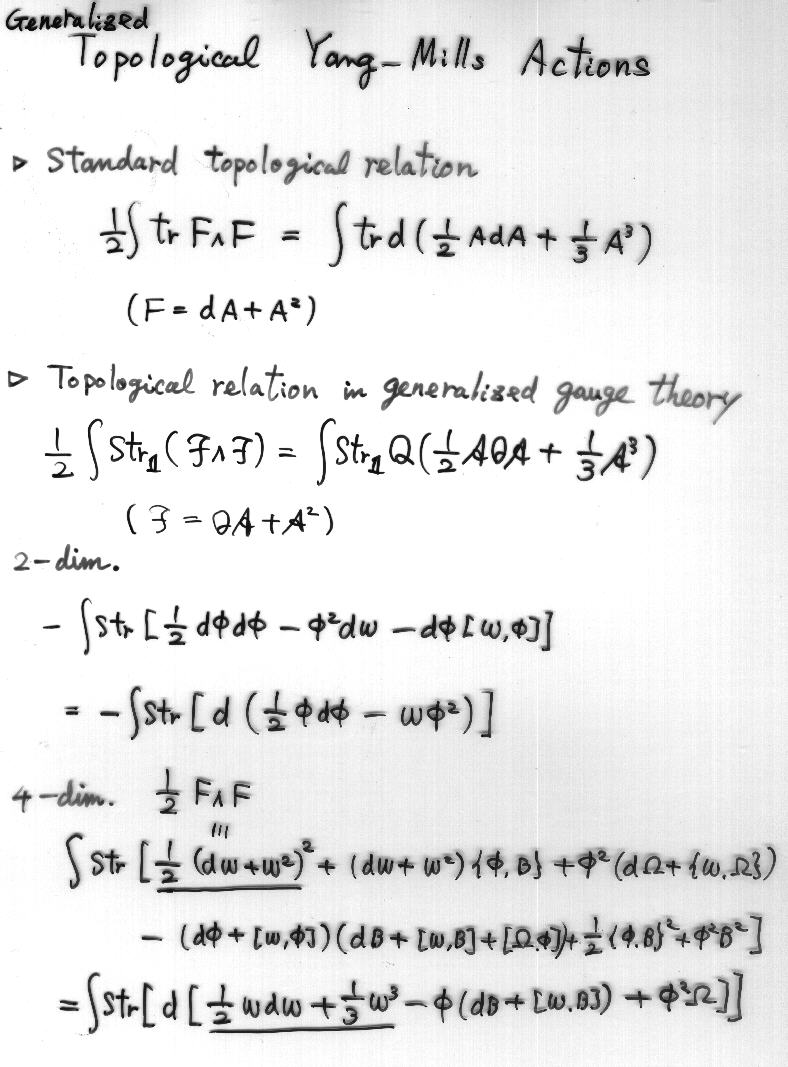 Generalized
Topological Yang-Mills Actions
▷ Standard topological relation
½∫ tr F∧F = ∫ tr d (½ AdA + ⅓ A³)
(F = dA + A²)
▷ Topological relation in generalized gauge theory
½ ∫ Str₁(ℱ∧ℱ) = ∫ Str₁ Q(½ 𝒜Q𝒜 + ⅓ 𝒜³)
(ℱ = Q𝒜 + 𝒜²)
2-dim.
- ∫ Str [½ dϕdϕ - ϕ²dω - dϕ[ω,ϕ]]
= - ∫ Str [d (½ ϕdϕ - ωϕ²)]
4-dim. ½ F∧F
|||
∫ Str [½ (dω+ω²)² + (dω+ω²){ϕ,B} + ϕ²(dΩ+{ω,Ω})
- (dϕ+[ω,ϕ])(dB+[ω,B]+[Ω,ϕ])+½{ϕ,B}²+ϕ²B²]
= ∫ Str[d[½ ωdω + ⅓ ω³ - ϕ(dB+[ω,B]) + ϕ²Ω]]